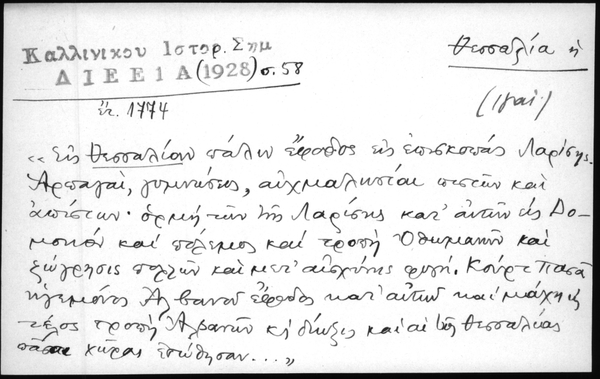 Καλλινίκου Ιστορ. Σημ
Δ Ι Ε Ε 1 Α (1928) σ. 58
Θεσσαλία ἡ
ἔτ. 1774
« Εἰς Θεσσαλίαν πάλιν ἔφοδος εἰς ἐπισκοπάς Λαρίσης.
Ἁρπαγαί, γυμνώσεις, αἰχμαλωσίαι πιστῶν καὶ
ἀπίστων· ὁρμή τῶν τῆς Λαρίσης κατ' αὐτῶν εἰς Δο-
μοκόν καί πόλεμος καί τροπή Ὀθωμανῶν καί
ζώγρησις πολλῶν καί μετ' αἰσχύνης φυγή. Κούρτ Πασᾶ
ἡγεμόνος Ἀλβανοῦ ἔφοδος κατ' αὐτῶν καί μάχη εἰς
τέλος τροπή Ἀλβανῶν κ δίωξις καί αἱ τῆς Θεσσαλίας
πᾶσαι χῶραι ἐπώθησαν.... »